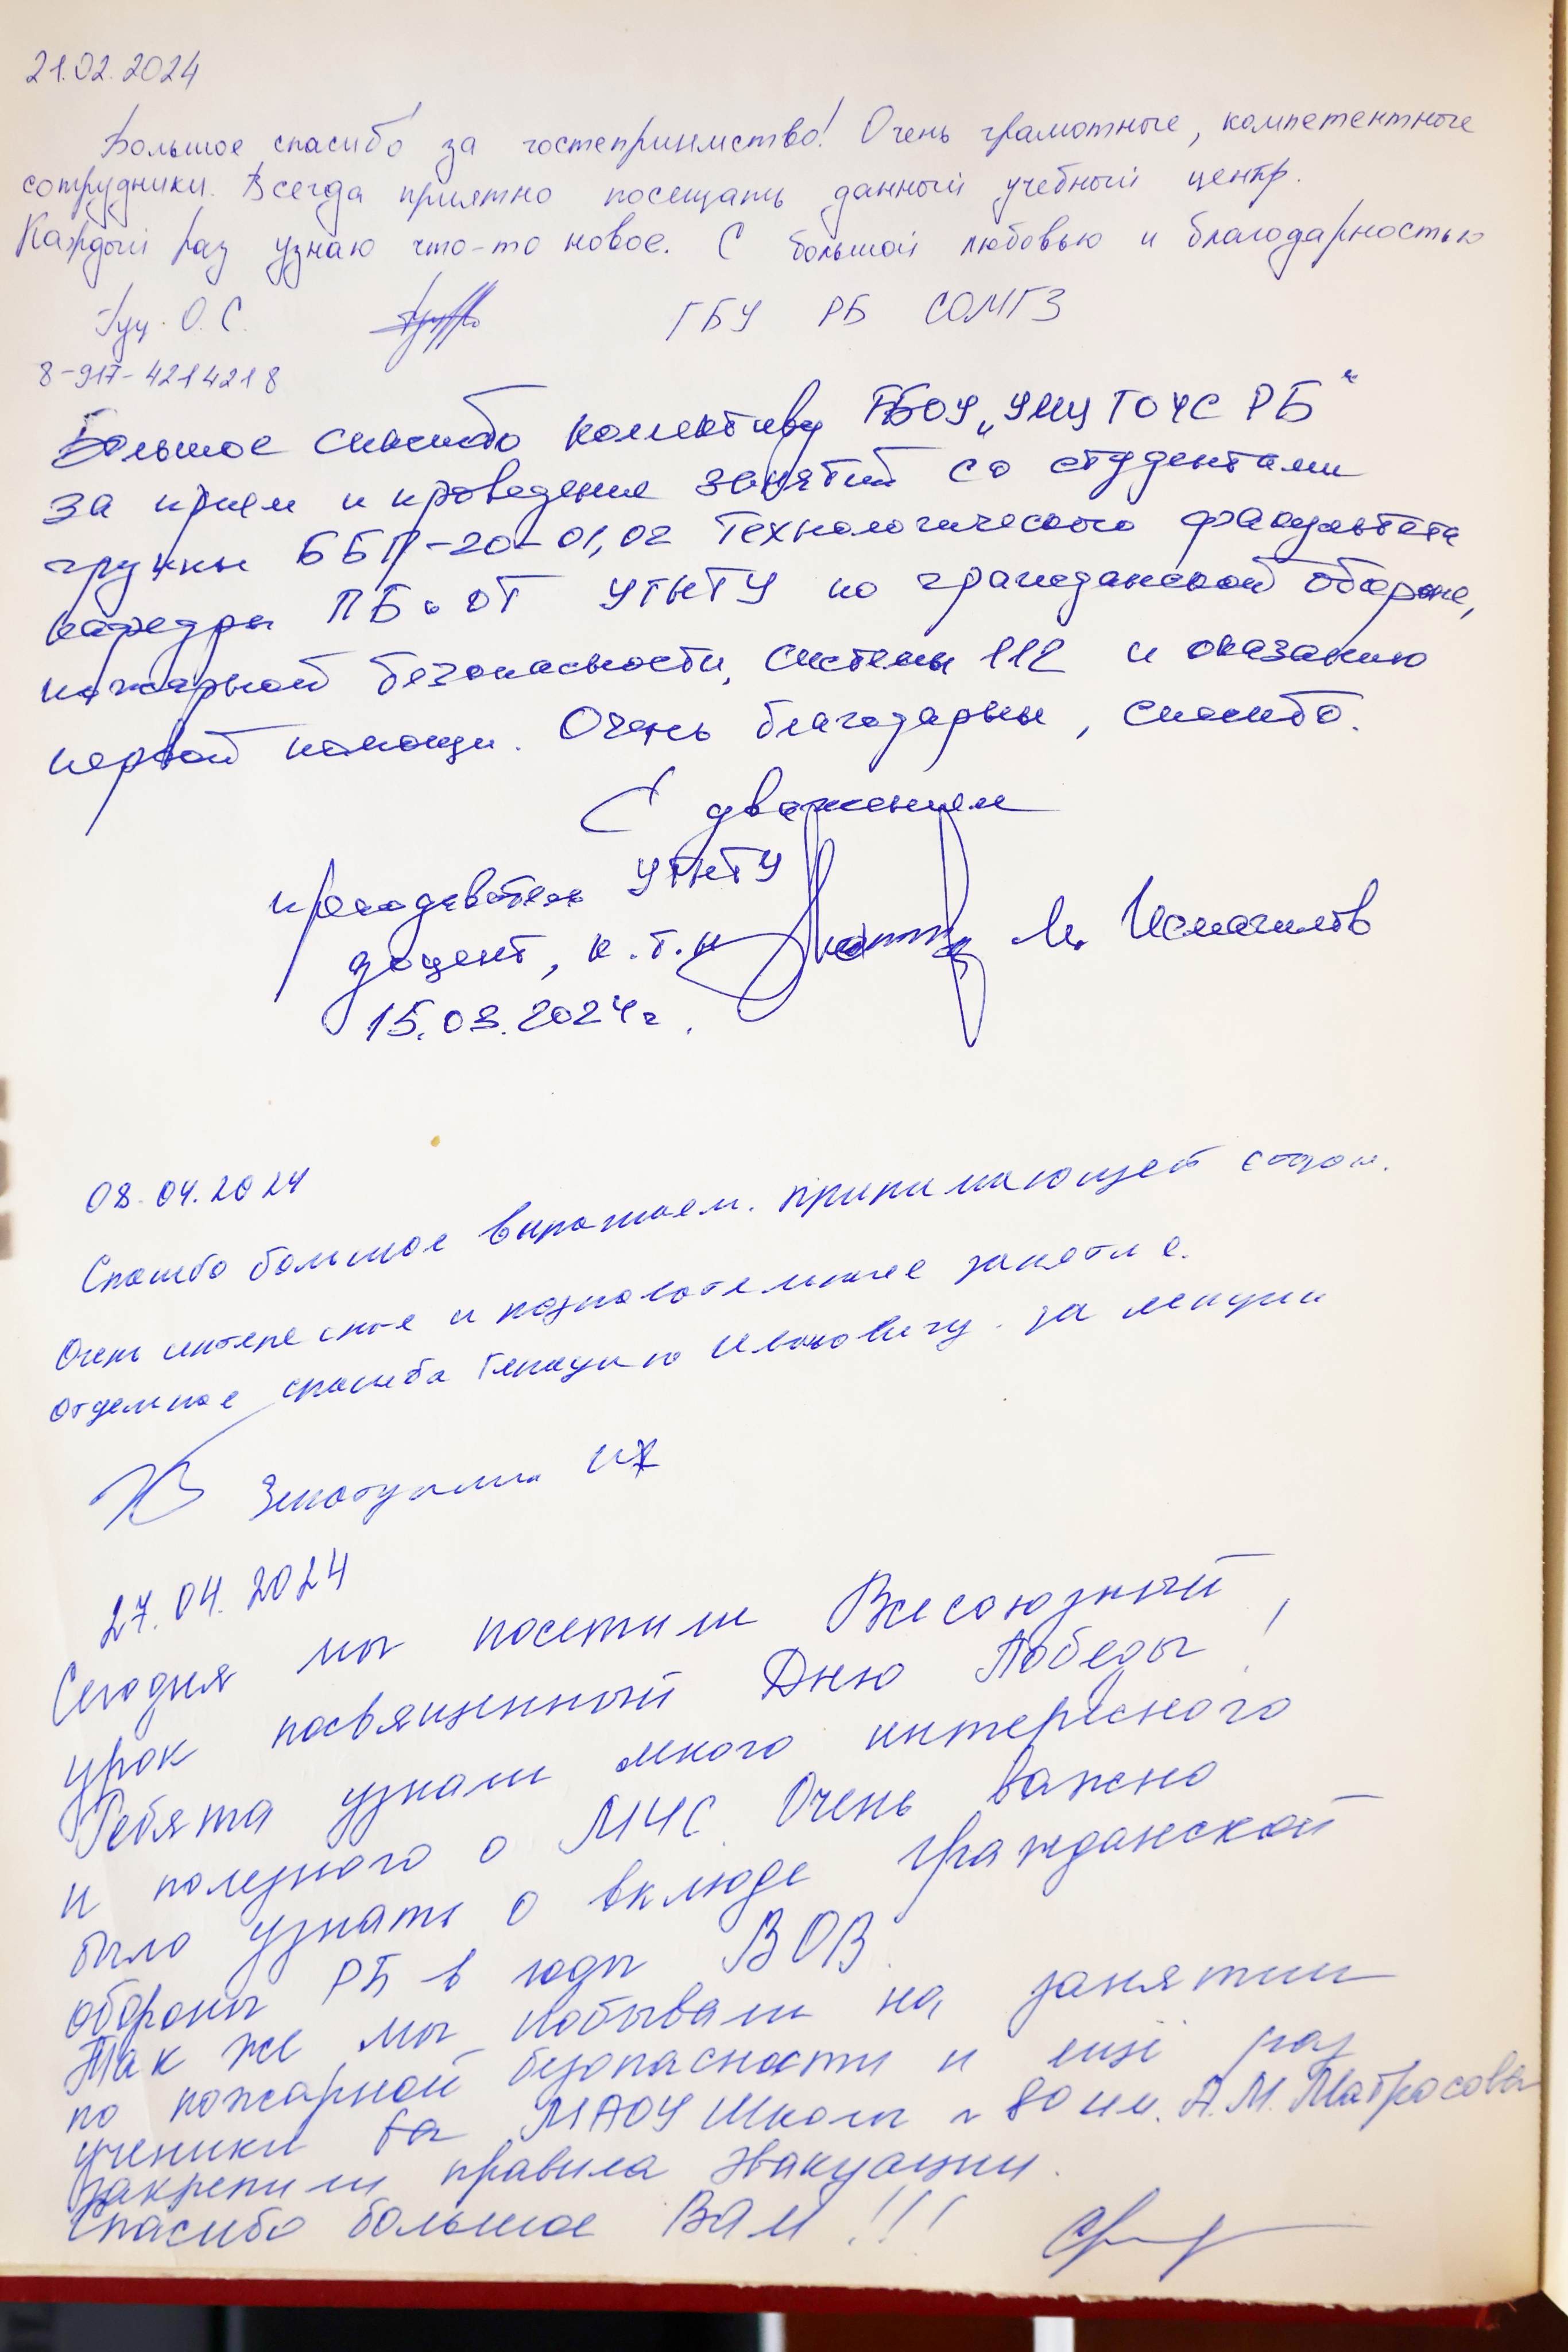 21.02.2024
Большое спасибо за гостеприимство! Очень грамотные, компетентные
сотрудники. Всегда приятно посещать данный учебный центр.
Каждый раз узнаю что-то новое. С большой любовью и благодарностью
О.С. ГБУ РБ СОМГЗ
8-917-4214218
Большое спасибо коллективу ГБОУ „УМЦ ГОЧС РБ"
за прием и проведение занятий со студентами
группы ББП-20-01,02 Технологического факультета
кафедры ПБ и ОТ УГНТУ по гражданской обороне,
пожарной безопасности, системы 112 и оказанию
первой помощи. Очень благодарны, спасибо.
С уважением
преподаватель УГНТУ
доцент, к.т.н М. Исмагилов
15.03.2024г.
08.04.2024
Спасибо большое выражаем. принимающей сторон.
Очень интересное и познавательное занятие.
Отдельное спасибо Ивановичу. за лекции
27.04.2024
Сегодня мы посетили Всесоюзный
урок посвященный Дню Победы!
Ребята узнали много интересного
и полезного о МЧС. Очень важно
было узнать о вкладе гражданской
обороны РБ в годы ВОВ.
Так же мы побывали на занятии
по пожарной безопасности и ещё раз
ученики МАОУ Школы № 80 им. А.М. Матросова
закрепили правила эвакуации.
Спасибо большое ВАМ!!!